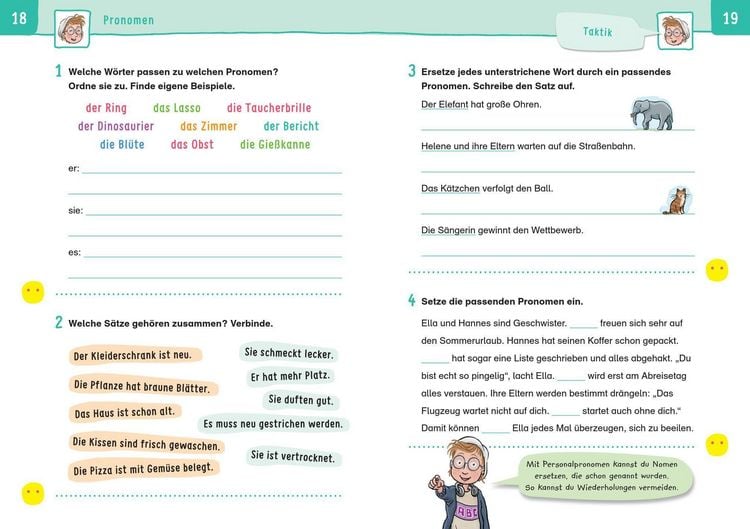 18
Pronomen
1 Welche Wörter passen zu welchen Pronomen?
Ordne sie zu. Finde eigene Beispiele.
der Ring das Lasso die Taucherbrille
der Dinosaurier das Zimmer der Bericht
die Blüte das Obst die Gießkanne
er:
sie:
es:
2 Welche Sätze gehören zusammen? Verbinde.
Der Kleiderschrank ist neu.
Die Pflanze hat braune Blätter.
Das Haus ist schon alt.
Die Kissen sind frisch gewaschen.
Die Pizza ist mit Gemüse belegt.
Sie schmeckt lecker.
Er hat mehr Platz.
Sie duften gut.
Es muss neu gestrichen werden.
Sie ist vertrocknet.
Taktik
19
3 Ersetze jedes unterstrichene Wort durch ein passendes
Pronomen. Schreibe den Satz auf.
Der Elefant hat große Ohren.
Helene und ihre Eltern warten auf die Straßenbahn.
Das Kätzchen verfolgt den Ball.
Die Sängerin gewinnt den Wettbewerb.
4 Setze die passenden Pronomen ein.
Ella und Hannes sind Geschwister. _____ freuen sich sehr auf
den Sommerurlaub. Hannes hat seinen Koffer schon gepackt.
_____ hat sogar eine Liste geschrieben und alles abgehakt. „Du
bist echt so pingelig“, lacht Ella. _____ wird erst am Abreisetag
alles verstauen. Ihre Eltern werden bestimmt drängeln: „Das
Flugzeug wartet nicht auf dich. _____ startet auch ohne dich.“
Damit können _____ Ella jedes Mal überzeugen, sich zu beeilen.
Mit Personalpronomen kannst du Nomen
ersetzen, die schon genannt wurden.
So kannst du Wiederholungen vermeiden.
ABC